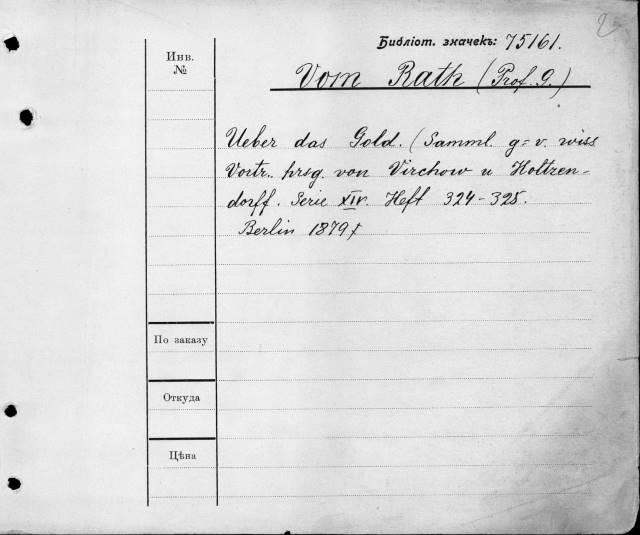 2
Библіот. значекъ: 75161.
Инв.
№
Vom Rath (Prof. G.)
Ueber das Gold. (Samml. g=v. wiss
Vortr. hrsg. von Virchow u Holtzen-
dorff. Serie XIV. Heft 324-325.
Berlin 1879)
По заказу
Откуда
Цѣна